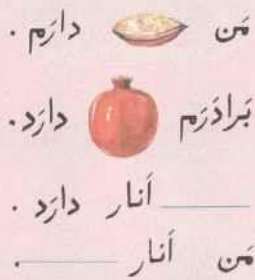 مَن دارَم .
بَرادَرَم دارَد.
______ اَنار دارَد .
مَن اَنار ______ .